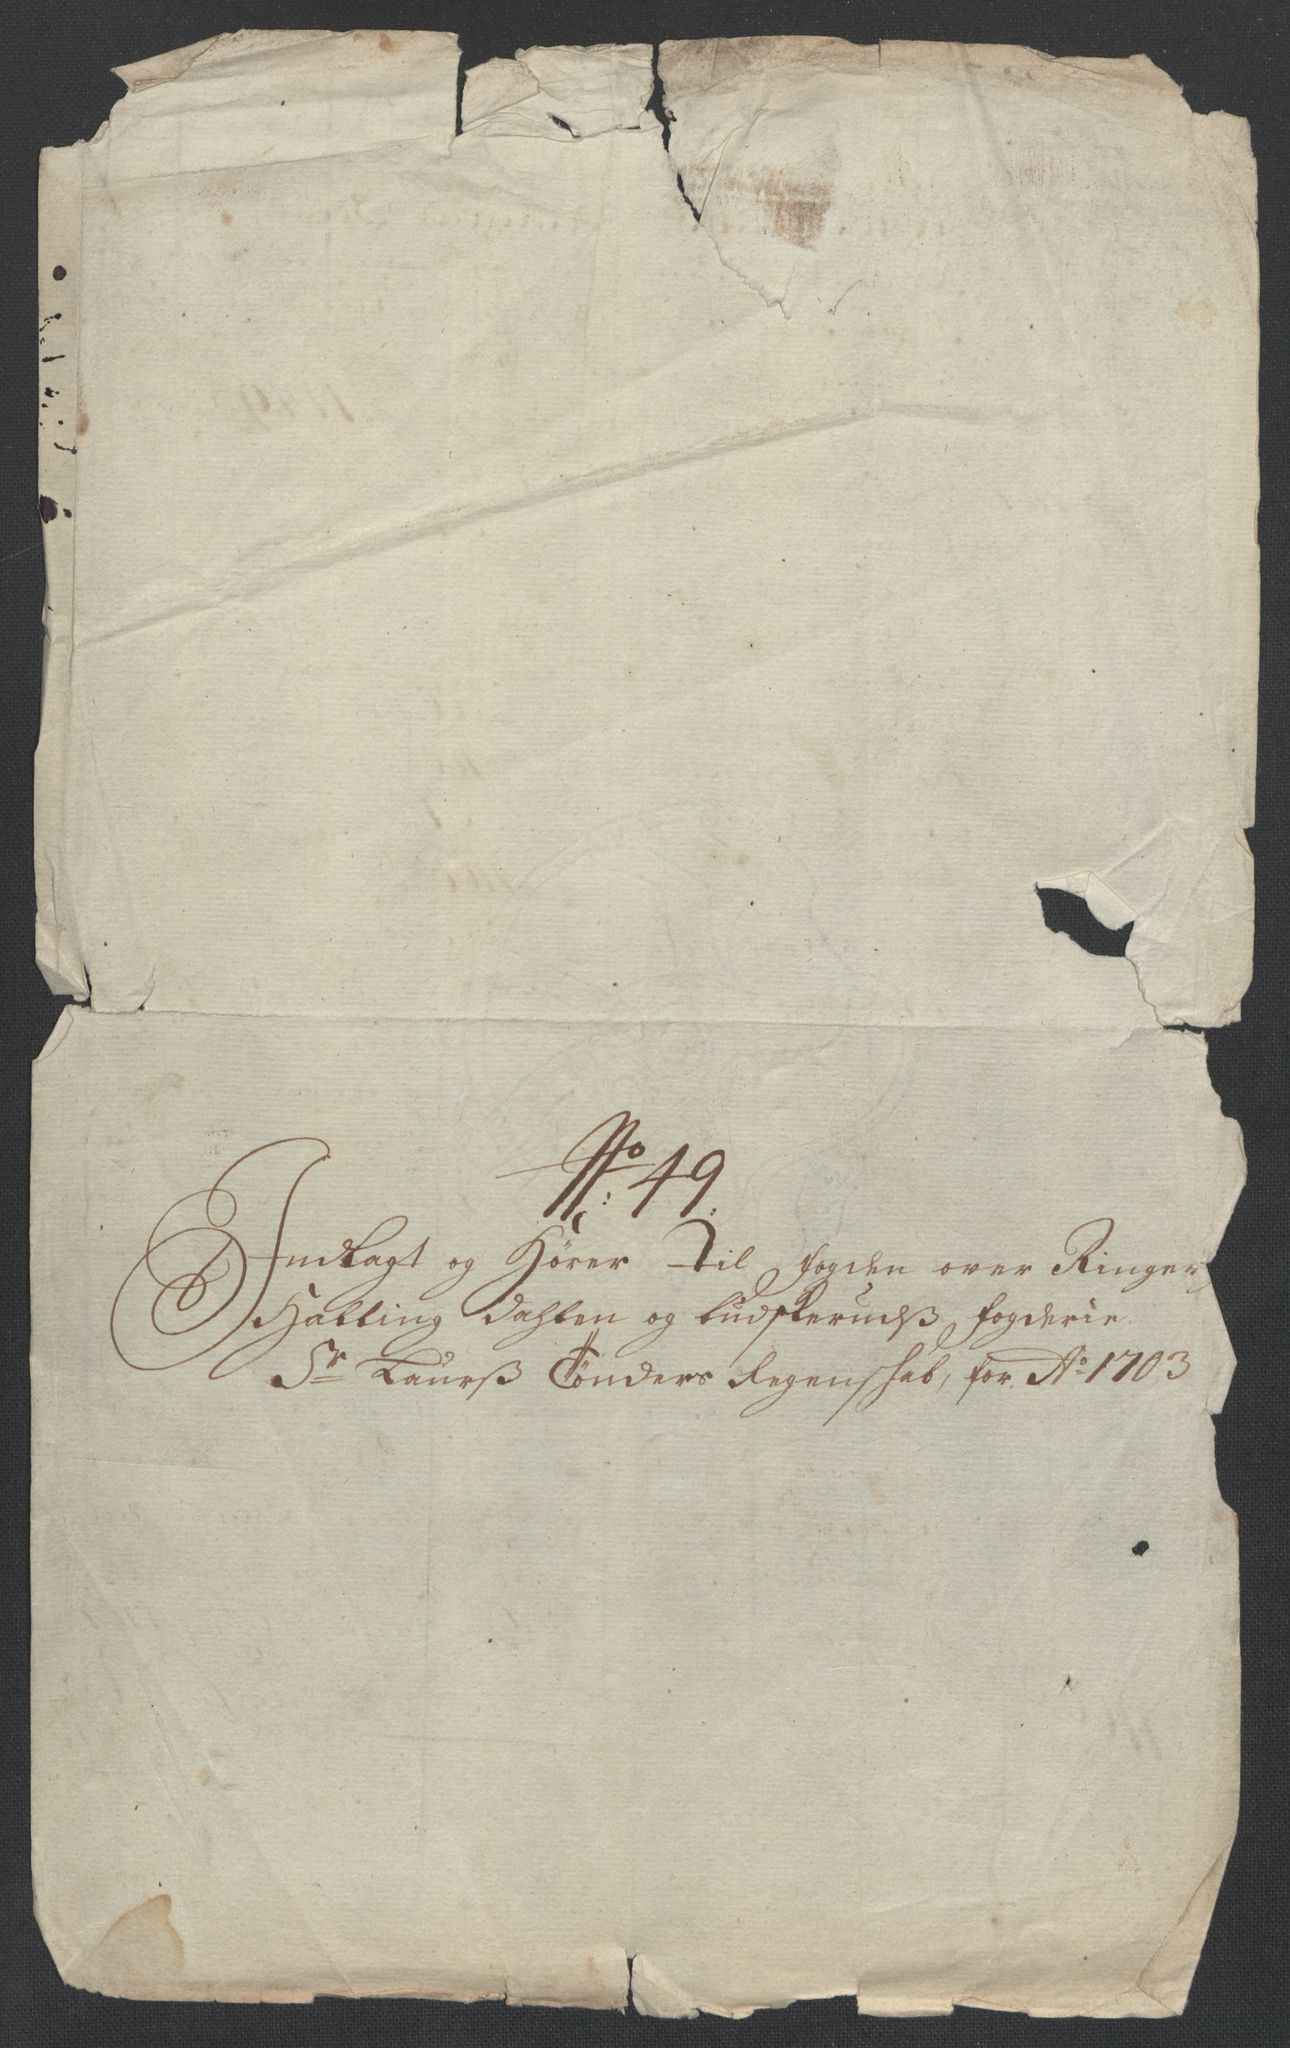 No: 49:
Indlagt og Hører Til fogden over Ringer
Halling Dahlen og budskeruds fogderie
Sr Laurß Tønders Regenskab, for Ao 1703